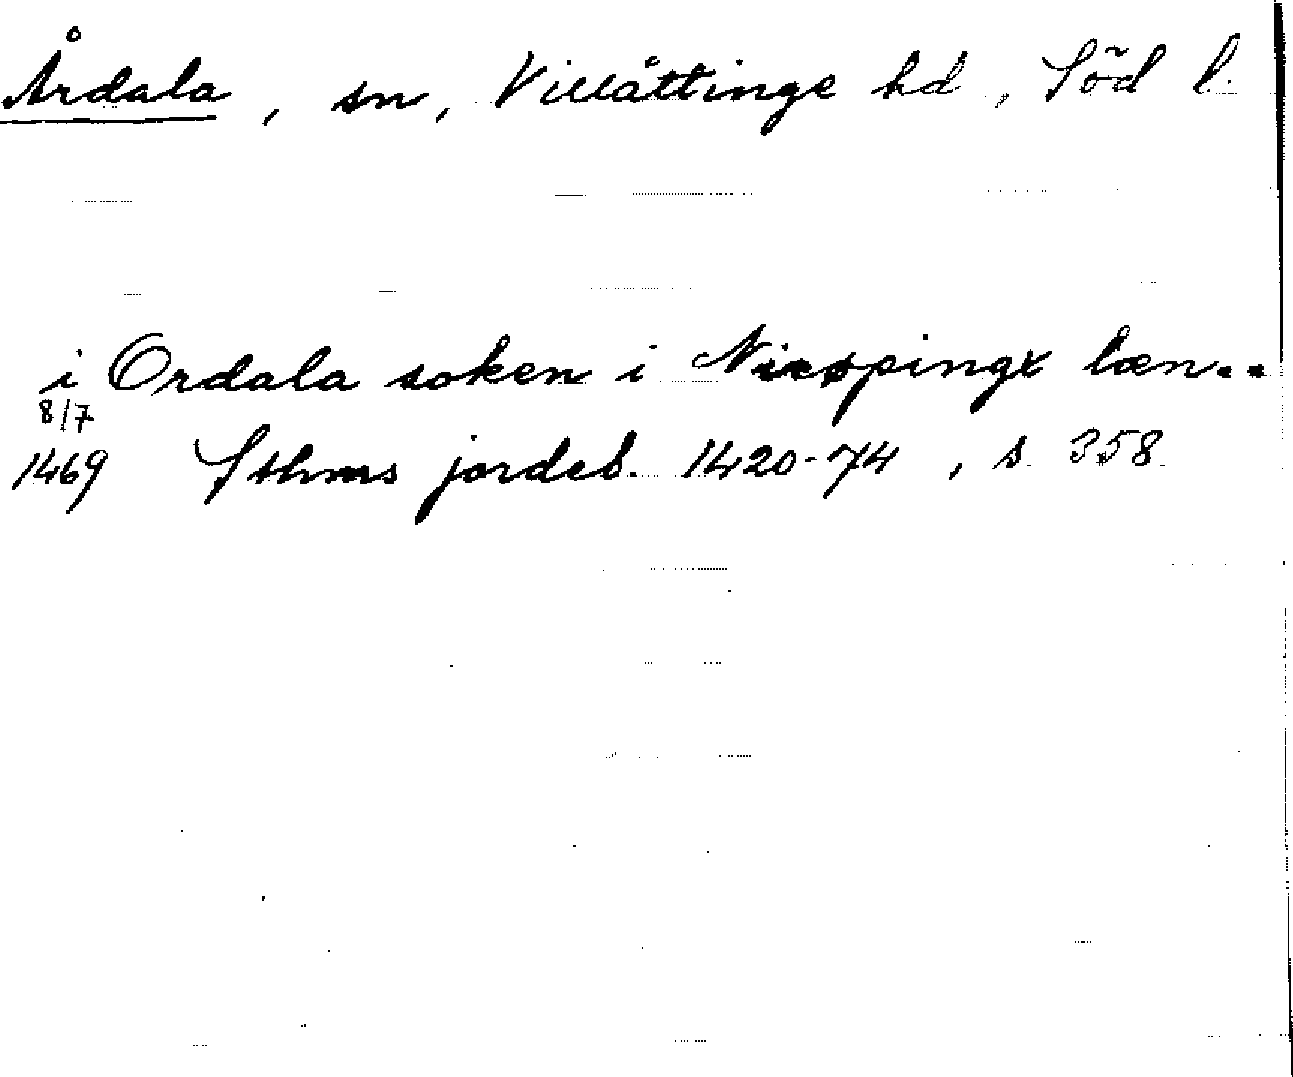 Årdala, sn, Villåttinge hd, Söd l.
i Ordala soken i Nicøpings læn..
8/7
1469 Sthms jordeb. 1420-74, s. 358